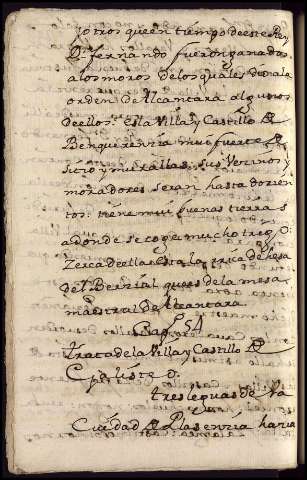 y otros que en tiempo de este Rey
D. fernando fueron ganados
a los moros de los quales dio ale
orden de Alcantara algunos
de ellos. es la Villa y Castillo de
Benquerenzia muy fuerte de
sitio y murallas. sus Vecinos y
moradores seran hasta dozien
tos. tiene muy buenas tierras
a donde se coge mucho trigo:
Zerca de ella esta la rica dehesa
del Berzial que es de la mesa
maestral de Alcantara
Cap.º 54
trata de la Villa y Castillo de
Gpaliste o.
tres leguas de la
Ciudad de Plasenzia hazia